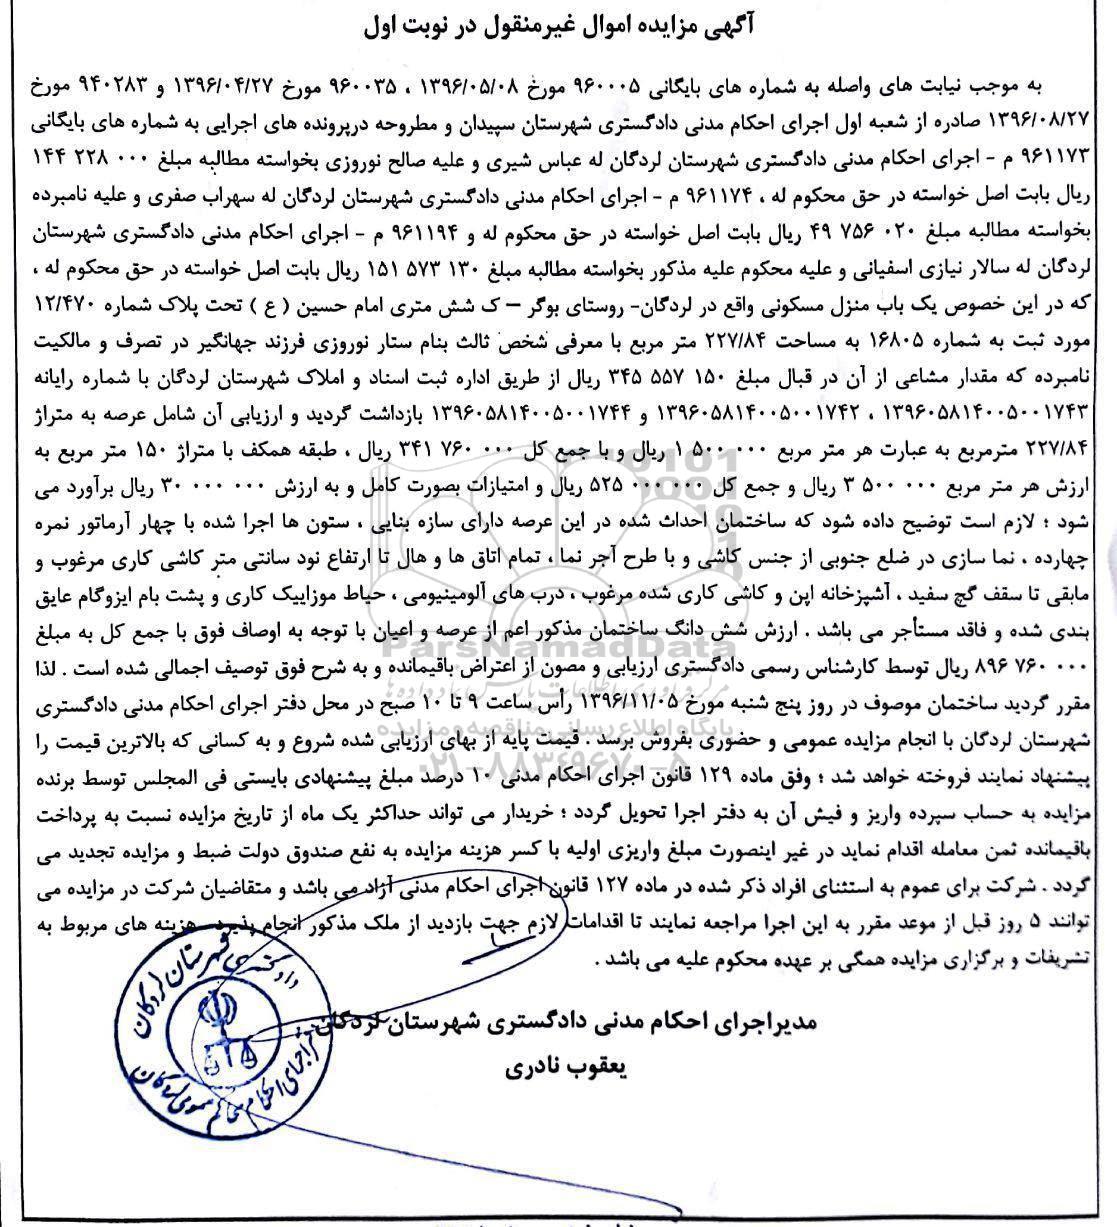 آگهی مزایده اموال غیرمنقول در نوبت اول
به موجب نیابت های واصله به شماره های بایگانی ۹۶۰۰۰۵ مورخ ۱۳۹۶/۰۵/۰۸ ، ۹۶۰۰۳۵ مورخ ۱۳۹۶/۰۴/۲۷ و ۹۴۰۲۸۳ مورخ
۱۳۹۶/۰۸/۲۷ صادره از شعبه اول اجرای احکام مدنی دادگستری شهرستان سپیدان و مطروحه درپرونده های اجرایی به شماره های بایگانی
۹۶۱۱۷۳ م - اجرای احکام مدنی دادگستری شهرستان لردگان له عباس شیری و علیه صالح نوروزی بخواسته مطالبه مبلغ ۰۰۰ ۲۲۸ ۱۴۴
ریال بابت اصل خواسته در حق محکوم له ، ۹۶۱۱۷۴ م - اجرای احکام مدنی دادگستری شهرستان لردگان له سهراب صفری و علیه نامبرده
بخواسته مطالبه مبلغ ۰۲۰ ۷۵۶ ۴۹ ریال بابت اصل خواسته در حق محکوم له و ۹۶۱۱۹۴ م - اجرای احکام مدنی دادگستری شهرستان
لردگان له سالار نیازی اسفیانی و علیه محکوم علیه مذکور بخواسته مطالبه مبلغ ۱۳۰ ۵۷۳ ۱۵۱ ریال بابت اصل خواسته در حق محکوم له ،
که در این خصوص یک باب منزل مسکونی واقع در لردگان- روستای بوگر – ک شش متری امام حسین ( ع ) تحت پلاک شماره ۱۲/۴۷۰
مورد ثبت به شماره ۱۶۸۰۵ به مساحت ۲۲۷/۸۴ متر مربع با معرفی شخص ثالث بنام ستار نوروزی فرزند جهانگیر در تصرف و مالکیت
نامبرده که مقدار مشاعی از آن در قبال مبلغ ۱۵۰ ۵۵۷ ۳۴۵ ریال از طریق اداره ثبت اسناد و املاک شهرستان لردگان با شماره رایانه
۱۳۹۶۰۵۸۱۴۰۰۵۰۰۱۷۴۳ ، ۱۳۹۶۰۵۸۱۴۰۰۵۰۰۱۷۴۲ و ۱۳۹۶۰۵۸۱۴۰۰۵۰۰۱۷۴۴ بازداشت گردید و ارزیابی آن شامل عرصه به متراژ
۲۲۷/۸۴ مترمربع به عبارت هر متر مربع ۰۰۰ ۵۰۰ ۱ ریال و با جمع کل ۰۰۰ ۷۶۰ ۳۴۱ ریال ، طبقه همکف با متراژ ۱۵۰ متر مربع به
ارزش هر متر مربع ۰۰۰ ۵۰۰ ۳ ریال و جمع کل ۰۰۰ ۰۰۰ ۵۲۵ ریال و امتیازات بصورت کامل و به ارزش ۰۰۰ ۰۰۰ ۳۰ ریال برآورد می
شود ؛ لازم است توضیح داده شود که ساختمان احداث شده در این عرصه دارای سازه بنایی ، ستون ها اجرا شده با چهار آرماتور نمره
چهارده ، نما سازی در ضلع جنوبی از جنس کاشی و با طرح آجر نما ، تمام اتاق ها و هال تا ارتفاع نود سانتی متر کاشی کاری مرغوب و
مابقی تا سقف گچ سفید ، آشپزخانه اپن و کاشی کاری شده مرغوب ، درب های آلومینیومی ، حیاط موزاییک کاری و پشت بام ایزوگام عایق
بندی شده و فاقد مستأجر می باشد . ارزش شش دانگ ساختمان مذکور اعم از عرصه و اعیان با توجه به اوصاف فوق با جمع کل به مبلغ
۰۰۰ ۷۶۰ ۸۹۶ ریال توسط کارشناس رسمی دادگستری ارزیابی و مصون از اعتراض باقیمانده و به شرح فوق توصیف اجمالی شده است . لذا
مقرر گردید ساختمان موصوف در روز پنج شنبه مورخ ۱۳۹۶/۱۱/۰۵ رأس ساعت ۹ تا ۱۰ صبح در محل دفتر اجرای احکام مدنی دادگستری
شهرستان لردگان با انجام مزایده عمومی و حضوری بفروش برسد . قیمت پایه از بهای ارزیابی شده شروع و به کسانی که بالاترین قیمت را
پیشنهاد نمایند فروخته خواهد شد ؛ وفق ماده ۱۲۹ قانون اجرای احکام مدنی ۱۰ درصد مبلغ پیشنهادی بایستی فی المجلس توسط برنده
مزایده به حساب سپرده واریز و فیش آن به دفتر اجرا تحویل گردد ؛ خریدار می تواند حداکثر یک ماه از تاریخ مزایده نسبت به پرداخت
باقیمانده ثمن معامله اقدام نماید در غیر اینصورت مبلغ واریزی اولیه با کسر هزینه مزایده به نفع صندوق دولت ضبط و مزایده تجدید می
گردد . شرکت برای عموم به استثنای افراد ذکر شده در ماده ۱۲۷ قانون اجرای احکام مدنی آزاد می باشد و متقاضیان شرکت در مزایده می
توانند ۵ روز قبل از موعد مقرر به این اجرا مراجعه نمایند تا اقدامات لازم جهت بازدید از ملک مذکور انجام پذیرد . هزینه های مربوط به
تشریفات و برگزاری مزایده همگی بر عهده محکوم علیه می باشد .
مدیراجرای احکام مدنی دادگستری شهرستان لردگان
یعقوب نادری
دادگستری شهرستان لردگان
ParsNamadData
پایگاه اطلاع رسانی مناقصه و مزایده
۰۲۱-۸۸۳۴۹۶۷۰-۵